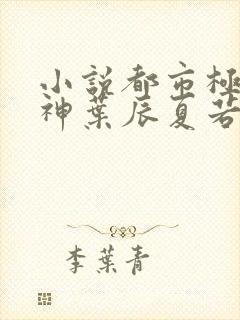 小説都市極
神葉辰夏若
李葉青